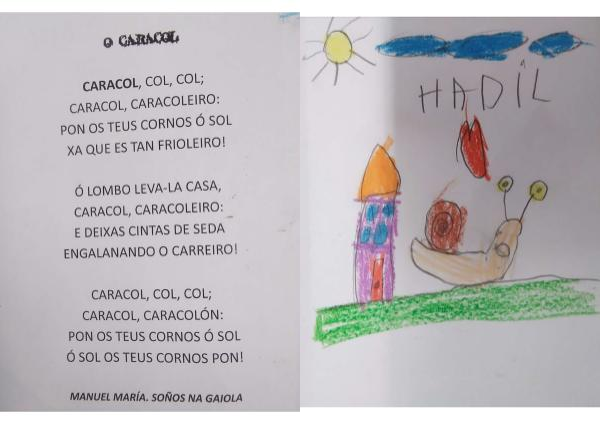 O CARACOL
CARACOL, COL, COL;
CARACOL, CARACOLEIRO:
PON OS TEUS CORNOS Ó SOL
XA QUE ES TAN FRIOLEIRO!
Ó LOMBO LEVA-LA CASA,
CARACOL, CARACOLEIRO:
E DEIXAS CINTAS DE SEDA
ENGALANANDO O CARREIRO!
CARACOL, COL, COL;
CARACOL, CARACOLÓN:
PON OS TEUS CORNOS Ó SOL
Ó SOL OS TEUS CORNOS PON!
MANUEL MARÍA. SOÑOS NA GAIOLA
HADIL